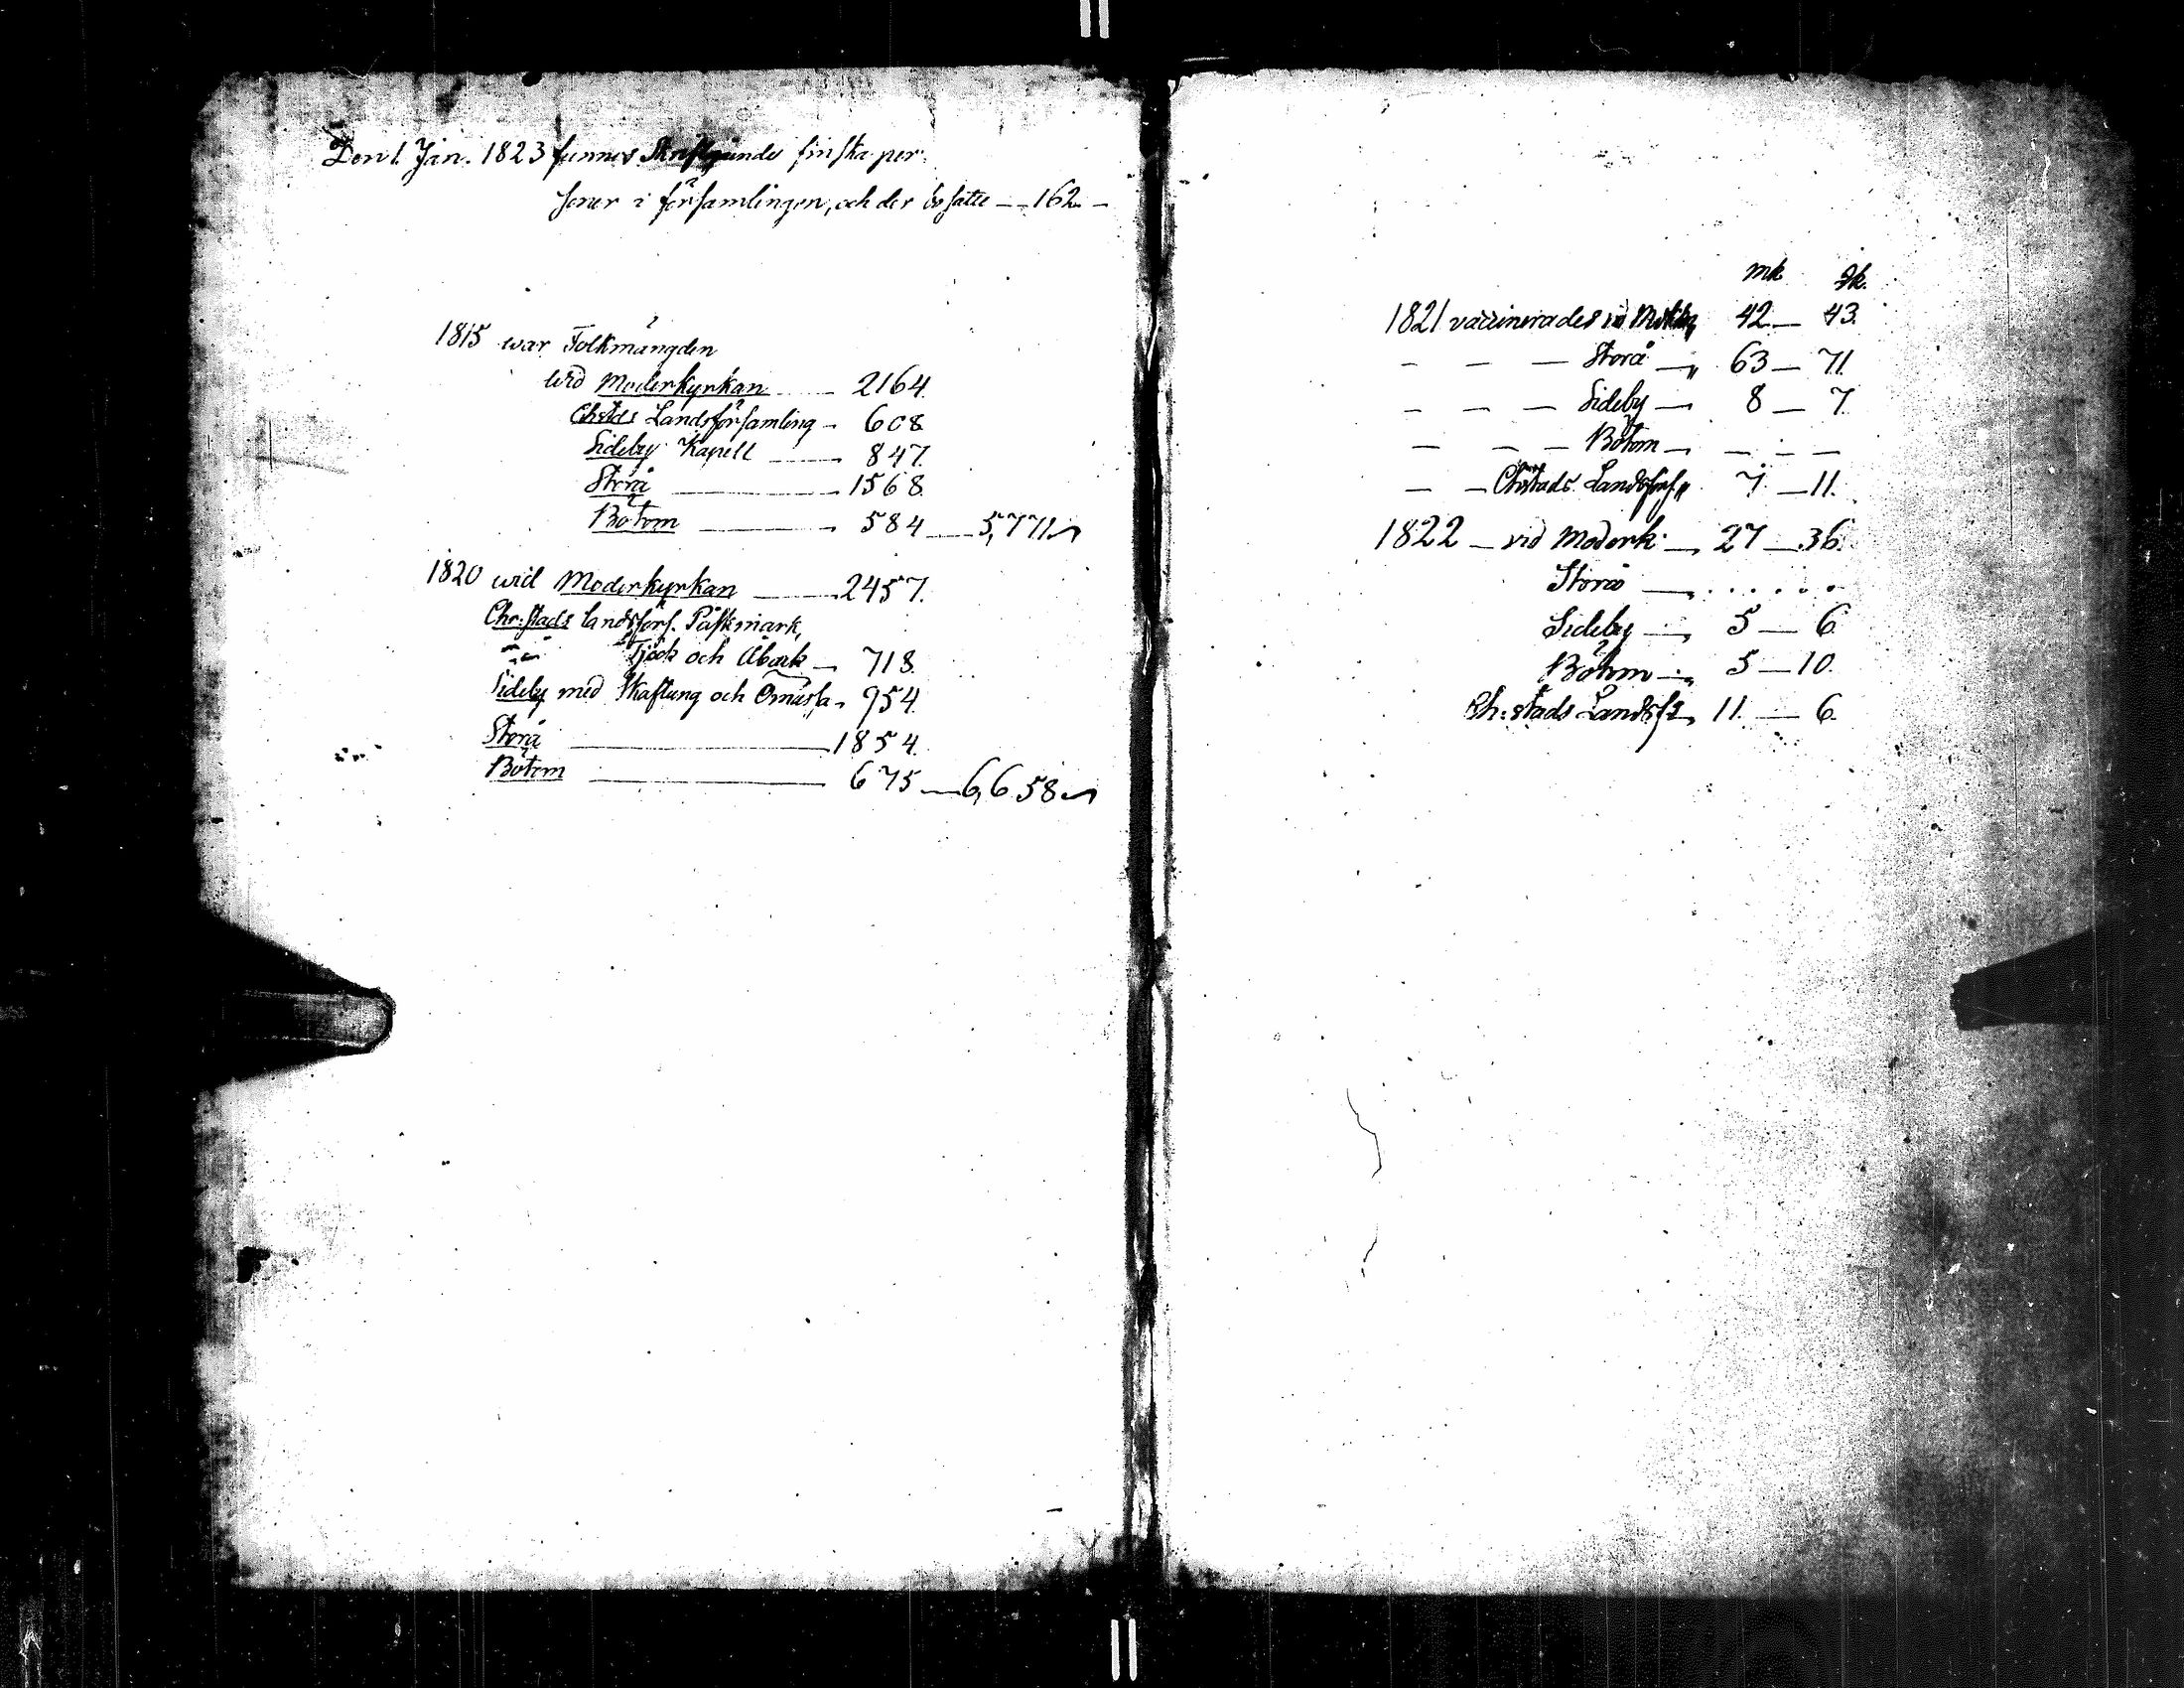 Den 1. Jan. 1823 funnos Skriftgående finska per-
soner i församlingen, och der bosatte — 162 —
1815 war Folkmängden
wid Moderkyrkan — 2164.
Chstds Landsförsamling — 608
Sideby Kapell — 847.
Storå — 1568.
Bötom — 584 — 5,771
1820 wid Moderkyrkan — 2457.
Chr:stads landsförs. Påskmark,
Tjöck och Åback — 718.
Sideby med Skaftung och Ömossa — 954.
Storå — 1854.
Bötom — 675 — 6,658
mk qk.
1821 vaccinerades vid Mkka 42 — 43.
— — — Storå — 63 — 71.
— — — Sideby — 8 — 7.
— — — Bötom — — — —
— — Christads Landsförs. 7. — 11.
1822 — vid Moderk. — 27 — 36.
Storå — . . . . . .
Sideby — 5 — 6.
Bötom — 5 — 10.
Ch:stads Landsfs. 11. — 6.